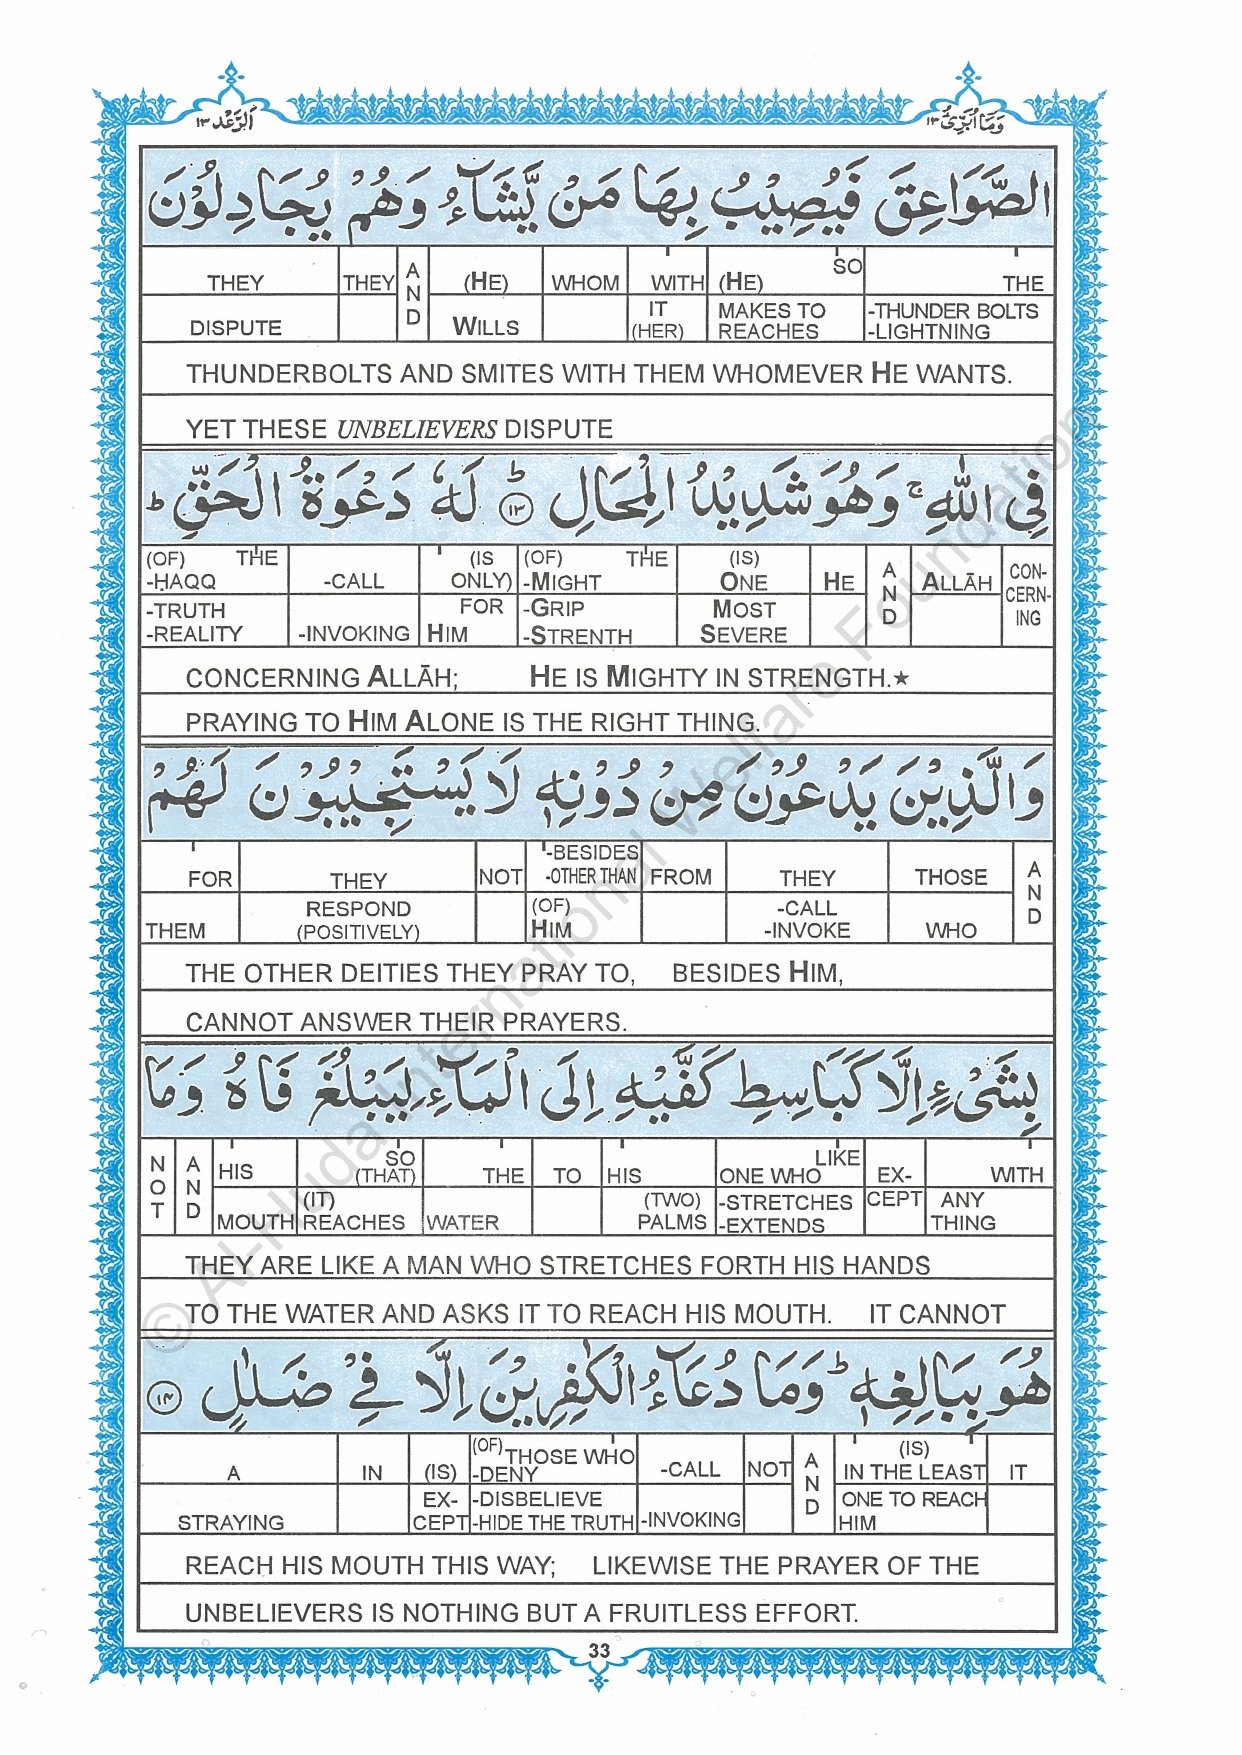 اَلرَّعْد ١٣
وَمَآ اُبَرِّئُ ١٣
الصَّوَاعِقَ فَيُصِيْبُ بِهَا مَنْ يَّشَآءُ وَهُمْ يُجَادِلُوْنَ
THEY THEY AND (HE) WHOM WITH (HE) SO THE
DISPUTE WILLS IT (HER) MAKES TO REACHES -THUNDER BOLTS -LIGHTNING
THUNDERBOLTS AND SMITES WITH THEM WHOMEVER HE WANTS.
YET THESE UNBELIEVERS DISPUTE
فِي اللّٰهِ ۚ وَهُوَ شَدِيْدُ الْمِحَالِ ؕ ١٣ لَهٗ دَعْوَةُ الْحَقِّ ؕ
(OF) THE -ḤAQQ -CALL (IS ONLY) (OF) THE -MIGHT (IS) ONE HE AND ALLĀH CONCERNING
-TRUTH -REALITY -INVOKING FOR HIM -GRIP -STRENTH MOST SEVERE
CONCERNING ALLĀH; HE IS MIGHTY IN STRENGTH.★
PRAYING TO HIM ALONE IS THE RIGHT THING.
وَالَّذِيْنَ يَدْعُوْنَ مِنْ دُوْنِهٖ لَا يَسْتَجِيْبُوْنَ لَهُمْ
FOR THEY NOT -BESIDES -OTHER THAN FROM THEY THOSE AND
THEM RESPOND (POSITIVELY) (OF) HIM -CALL -INVOKE WHO
THE OTHER DEITIES THEY PRAY TO, BESIDES HIM,
CANNOT ANSWER THEIR PRAYERS.
بِشَيْءٍ اِلَّا كَبَاسِطِ كَفَّيْهِ اِلَى الْمَآءِ لِيَبْلُغَ فَاهُ وَمَا
NOT AND HIS SO (THAT) THE TO HIS LIKE ONE WHO EX- WITH
MOUTH (IT) REACHES WATER (TWO) PALMS -STRETCHES -EXTENDS CEPT ANY THING
THEY ARE LIKE A MAN WHO STRETCHES FORTH HIS HANDS
TO THE WATER AND ASKS IT TO REACH HIS MOUTH. IT CANNOT
هُوَ بِبَالِغِهٖ ؕ وَمَا دُعَآءُ الْكٰفِرِيْنَ اِلَّا فِيْ ضَلٰلٍ ١٤
A IN (IS) (OF) THOSE WHO -DENY -CALL NOT AND (IS) IN THE LEAST IT
STRAYING EX-CEPT -DISBELIEVE -HIDE THE TRUTH -INVOKING ONE TO REACH HIM
REACH HIS MOUTH THIS WAY; LIKEWISE THE PRAYER OF THE
UNBELIEVERS IS NOTHING BUT A FRUITLESS EFFORT.
33
© Al-Huda International Welfare Foundation